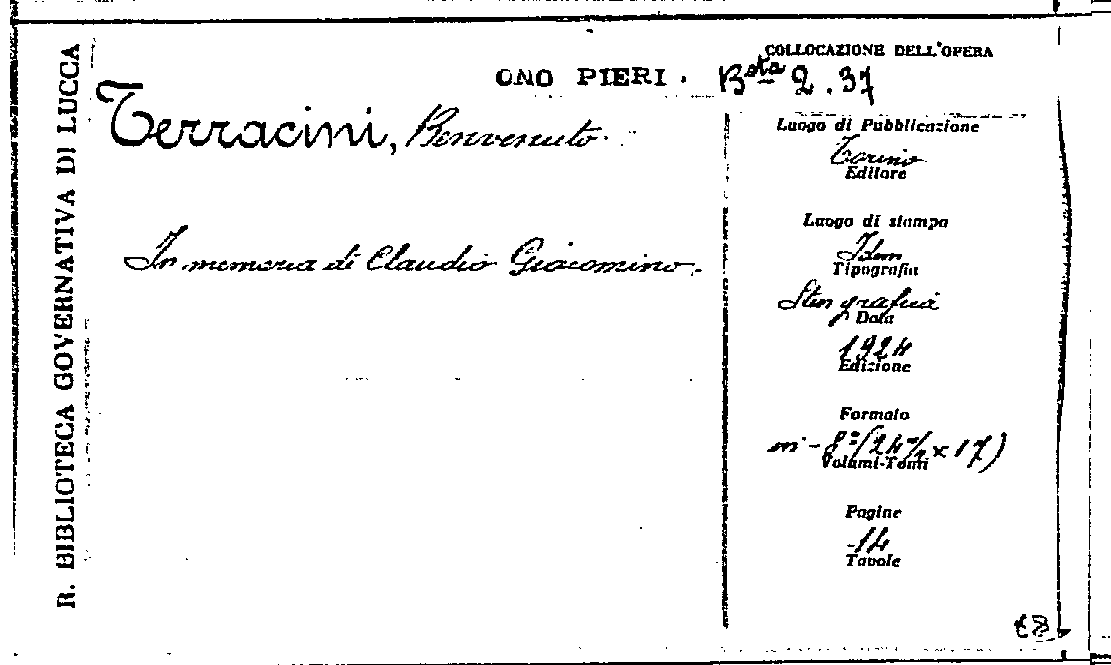 R. BIBLIOTECA GOVERNATIVA DI LUCCA
COLLOCAZIONE DELL'OPERA
ONO PIERI. Bsta 2.37
Terracini, Benvenuto.
In memoria di Claudio Giacomino.
Luogo di Pubblicazione
Torino
Editore
Luogo di stampa
Idem
Tipografia
Data
1924
Edizione
Formato
in-8º (24 1/2 x 17)
Volumi-Tomi
Pagine
14
Tavole